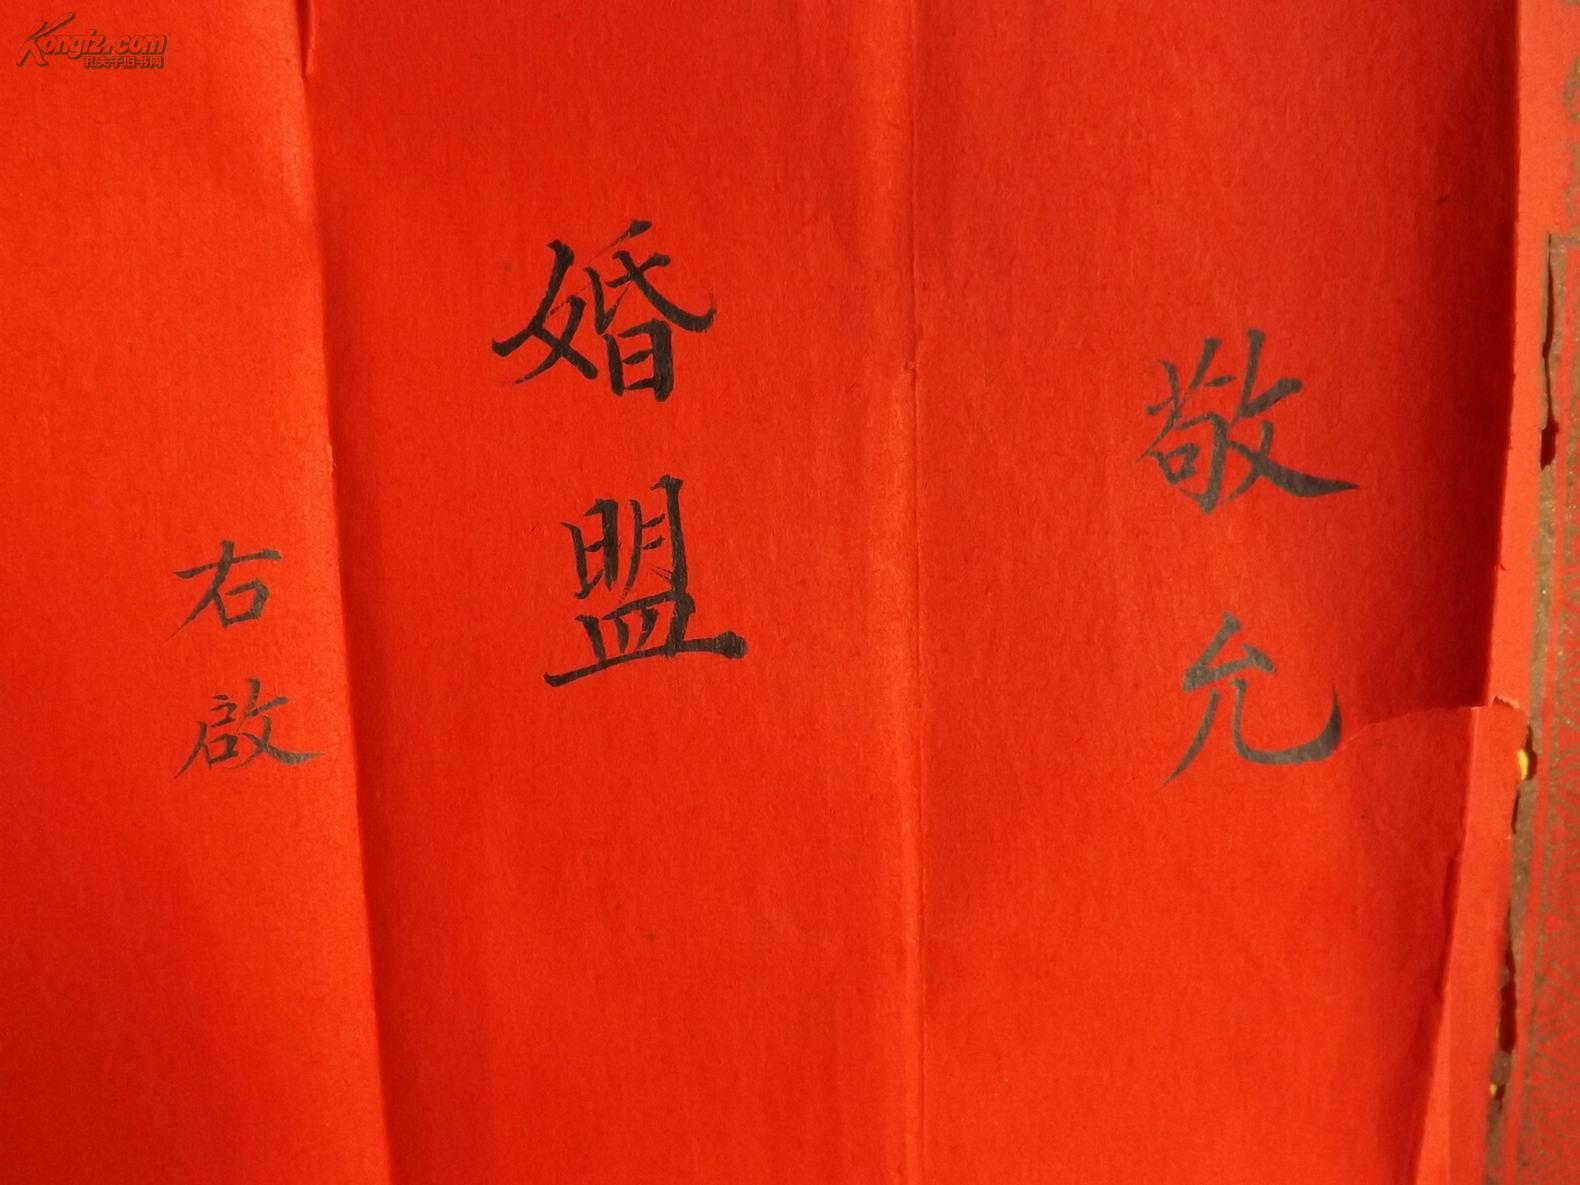 敬允
婚盟
右啟
Kongfz.com
孔夫子旧书网